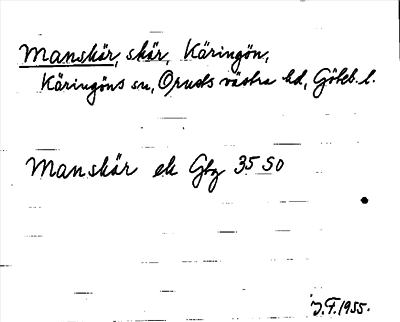 Manskär, skär, Käringön,
Käringöns sn, Orusts västra hd, Göteb. l.
Manskär ek Gbg 35 SO
J.F. 1955.